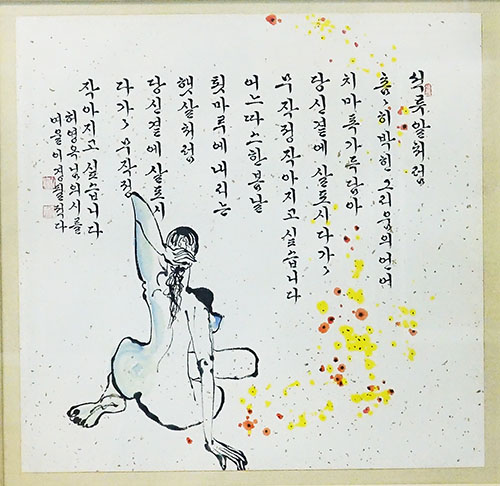 석류알처럼
촘〃히 박힌 그리움의 언어
치마폭 가득 담아
당신 곁에 살포시 다가〃
무작정 작아지고 싶습니다
어느 다스한 봄날
툇마루에 내리는
햇살처럼
당신 곁에 살포시
다가〃 무작정
작아지고 싶습니다
허영옥님의 시를
여울 적다